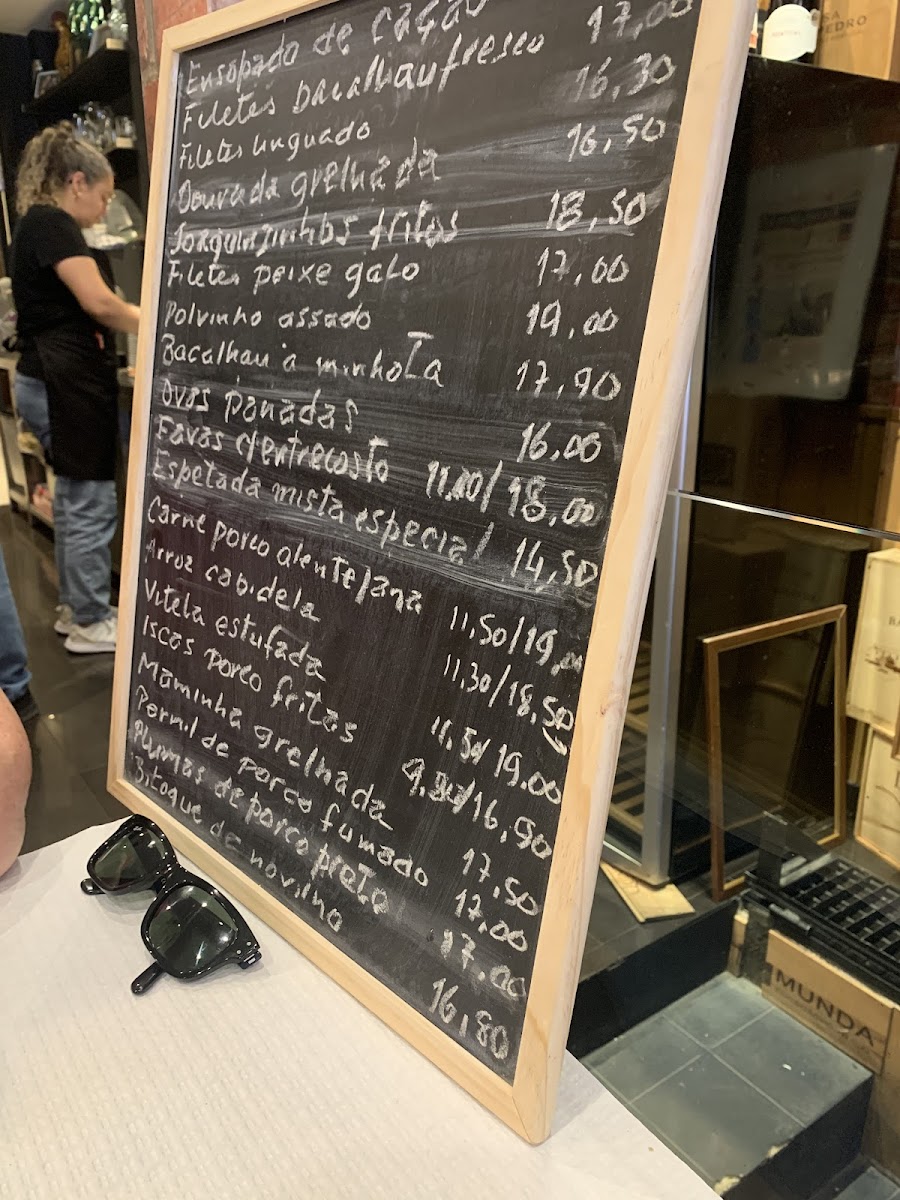 Ensopado de cação
Filetes bacalhau fresco 17,00
Filetes linguado 16,30
Dourada grelhada 16,50
Joaquinzinhos fritos 18,50
Filetes peixe galo 17,00
Polvinho assado 19,00
Bacalhau à minhota 17,90
Ovas panadas 16,00
Favas c/entrecosto 11,00/18,00
Espetada mista especial 14,50
Carne porco alentejana 11,50/19,00
Arroz cabidela 11,30/18,50
Vitela estufada 11,50/19,00
Iscas porco fritas 9,90/16,90
Maminha grelhada 17,50
Pernil de porco fumado 17,00
Plumas de porco preto 17,00
Bitoque de novilho 16,80
PEDRO
MUNDA